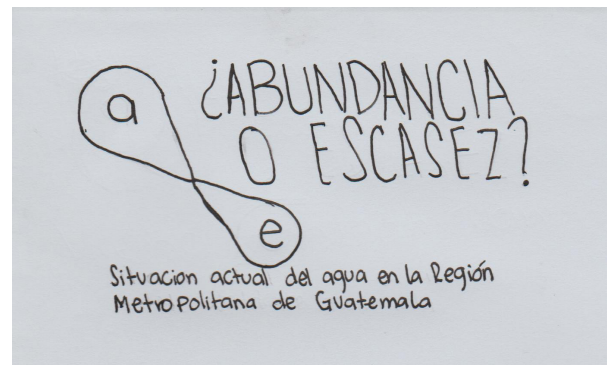 a
¿ABUNDANCIA
O ESCASEZ?
e
Situacion actual del agua en la Región
Metropolitana de Guatemala